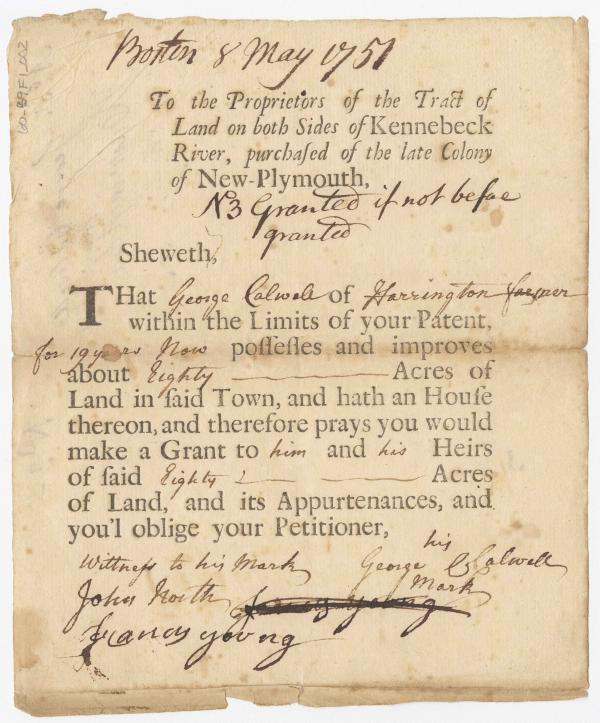 60-89F1_002
Boston 8 May 1751
To the Proprietors of the Tract of
Land on both Sides of Kennebeck
River, purchaſed of the late Colony
of New-Plymouth,
N3 Granted if not befoe
granted
Sheweth,
THat George Calwell of Harrington farmer
within the Limits of your Patent,
for 19 years Now poſſeſſes and improves
about Eighty Acres of
Land in ſaid Town, and hath an Houſe
thereon, and therefore prays you would
make a Grant to him and his Heirs
of ſaid Eighty Acres
of Land, and its Appurtenances, and
you'l oblige your Petitioner,
Wittness to his Mark
his
George C Calwell
Mark
John North
francis young
francis young